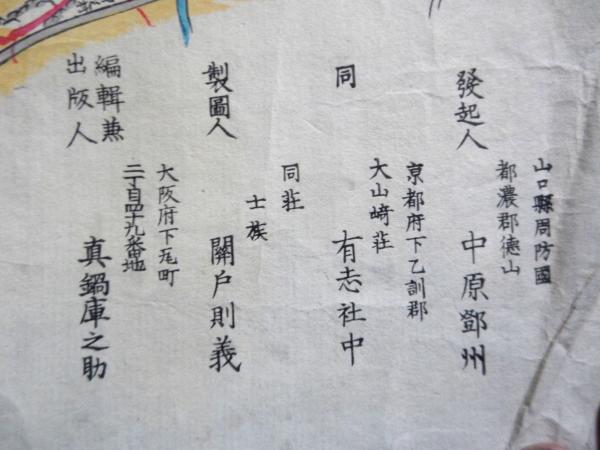 發起人
山口縣周防國
都濃郡徳山
中原鄧州
同
京都府下乙訓郡
大山崎莊
有志社中
製圖人
同莊
士族
關戸則義
編輯兼
出版人
大阪府下尾町
二丁目四十九番地
真鍋庫之助